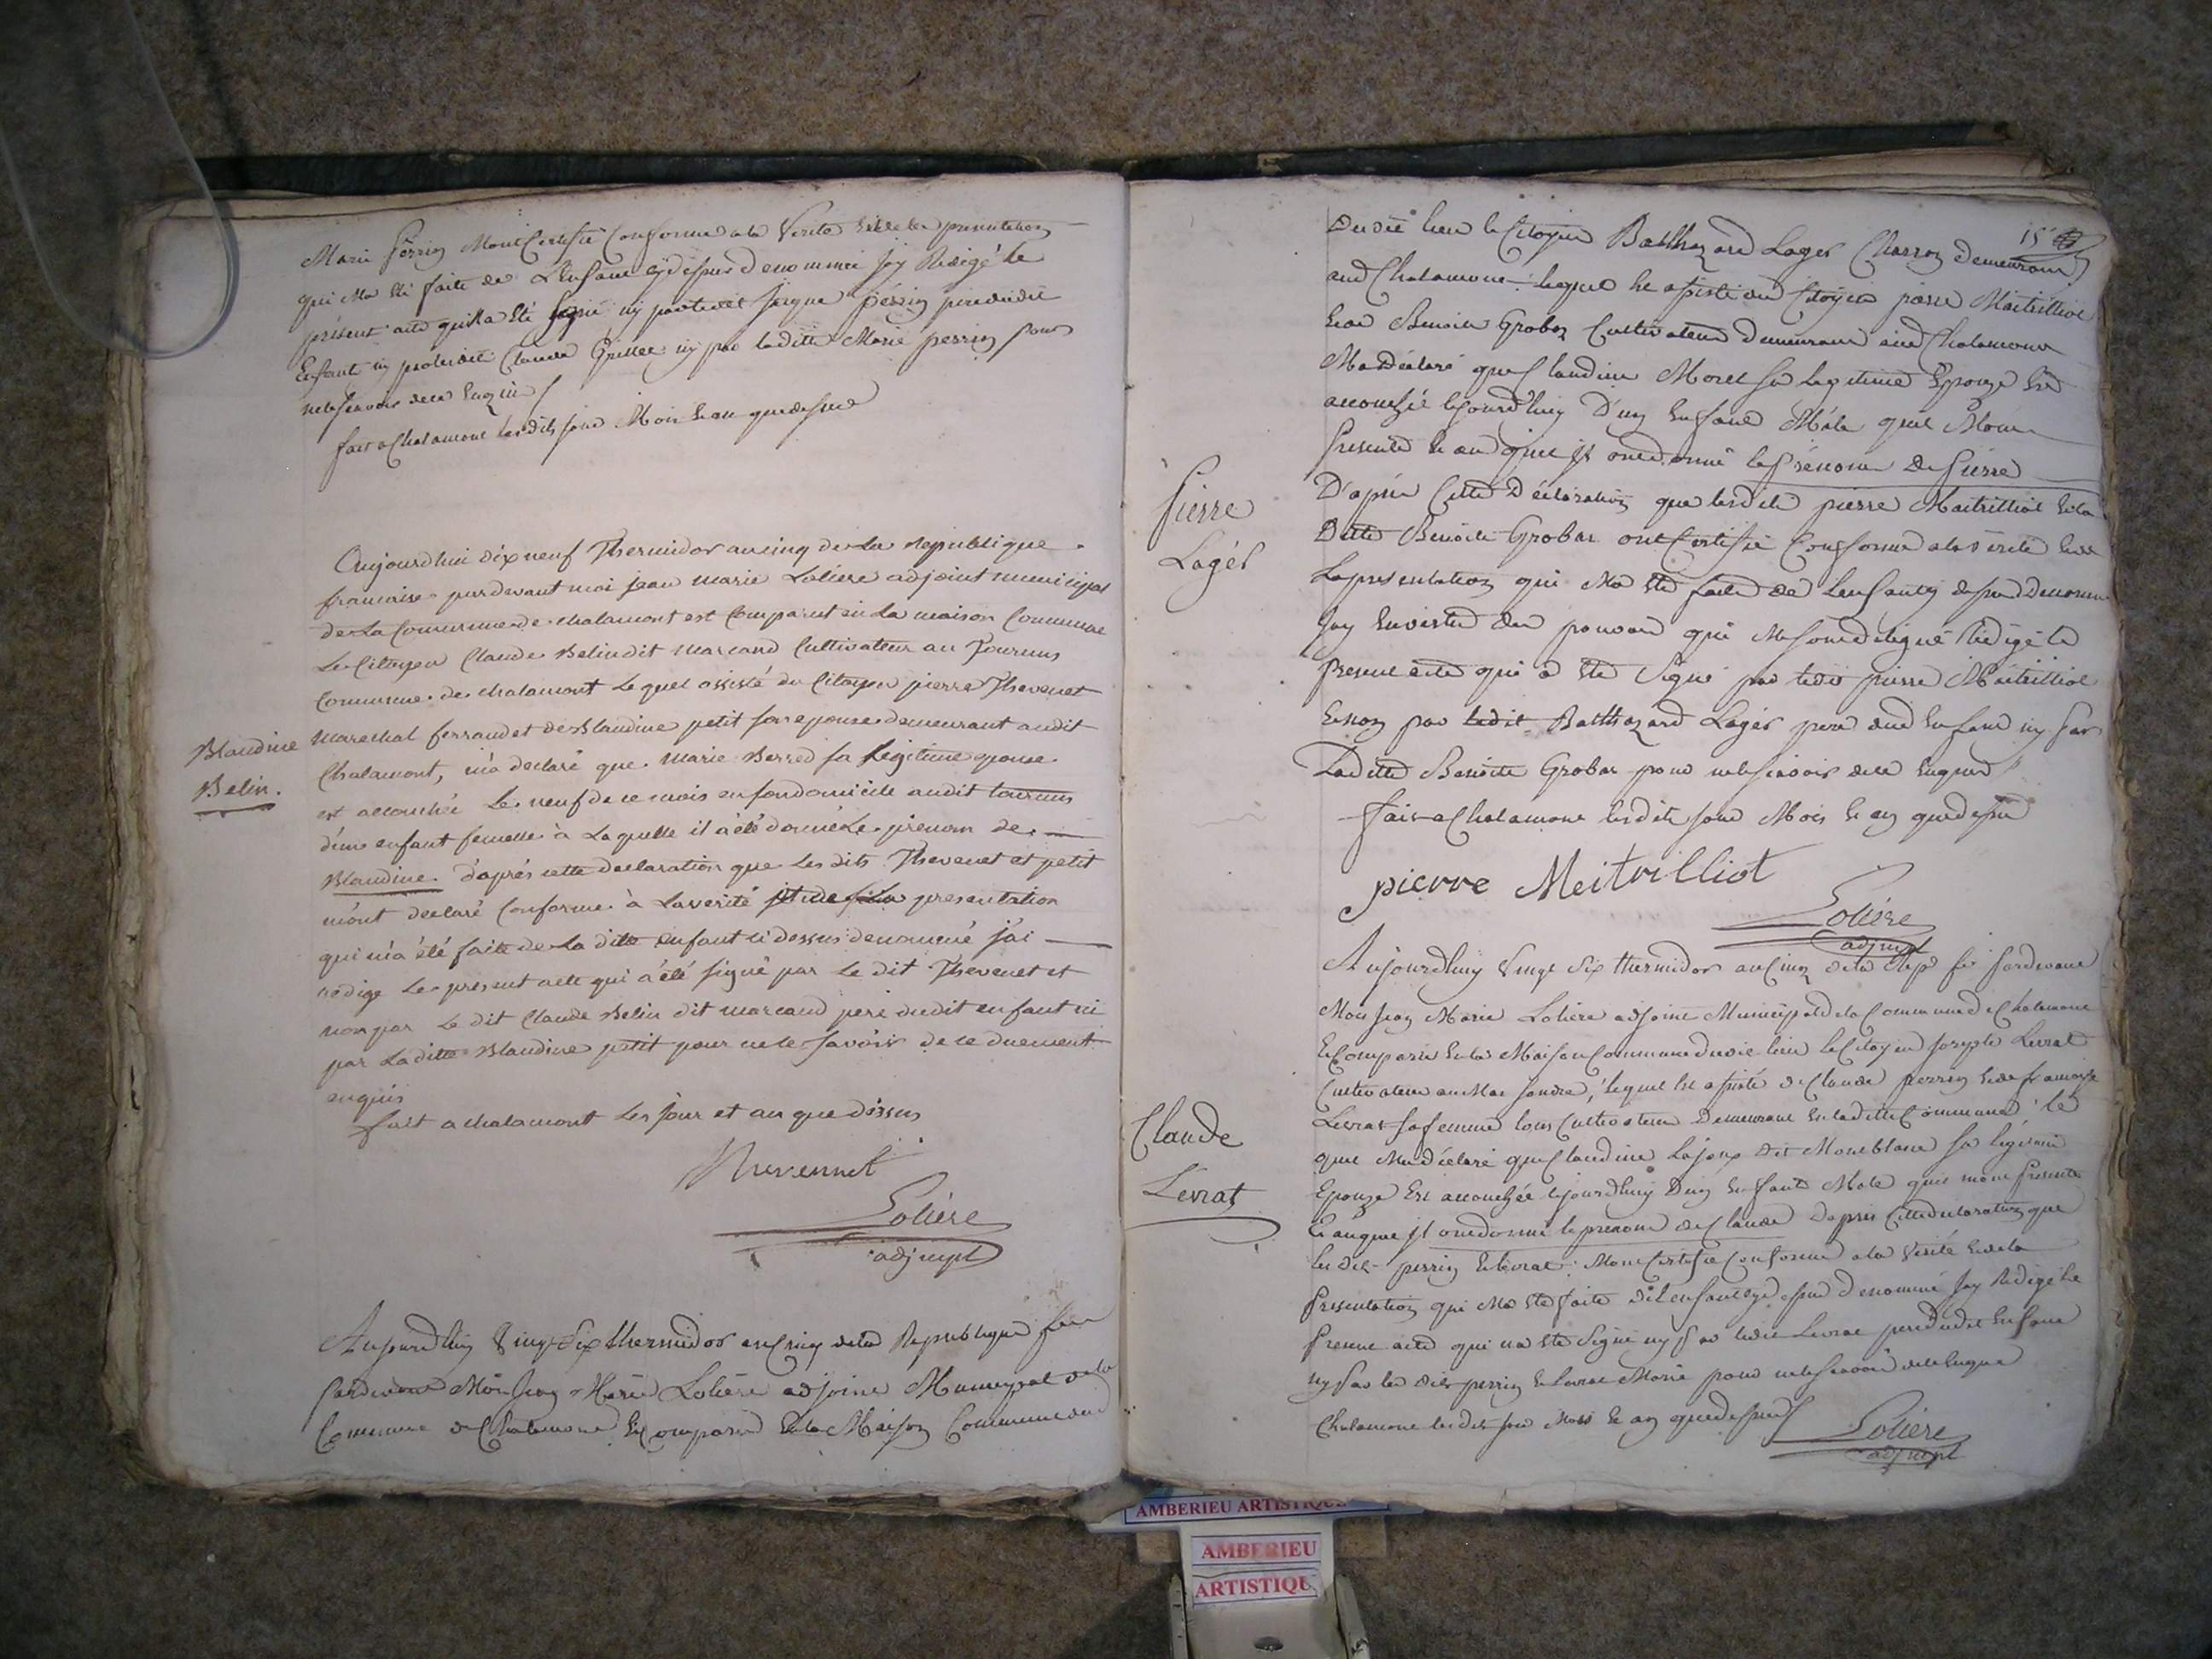 Marie Perrin Mont Certifié Conforme a la Verité et de la presentation
qui Ma Eté faite de L'Enfant cy dessus denommée Jay Redigé le
présent acte qui Na Eté Signé ny par ledit perrin pere dudit
Enfant ny par ledit Claude Grillet ny par ladite Marie perrin pour
ne le Scavoir de ce Enquis
fait a Chalamont les dits jour Mois et an que dessus
Aujourdhui dix neuf Thermidor an cinq de la Republique
francaise pardevant moi jean marie Loliere adjoint municipal
de la Commune de chalamont est Comparut en la maison Commune
Le Citoyen Claude Belin dit marcand Cultivateur au Tournus
Commune de chalamont Lequel assisté du Citoyen pierre Thevenet
Marechal ferrand et de Blandine petit son epouse demeurant audit
Chalamont, m'a declaré que Marie Berred sa legitime epouse
est accouchée Le neuf de ce mois en son domicile audit tournus
d'une enfant femelle à Laquelle il a été donné Le prenom de
Blandine. d'aprés cette declaration que Les dits Thevenet et petit
m'ont declaré Conforme à La verité et de la presentation
qui m'a été faite de La dite enfant ci dessus denommé j'ai
redigé Le present acte qui a été signé par Le dit Thevenet et
non par Le dit Claude Belin dit marcand pere dudit enfant ni
par La dite Blandine petit pour ne le savoir de ce duement
enquis
fait a chalamont Les jour et an que dessus
Blandine
Belin.
Thevennet
Loliére
adj mpl
Aujourdhuy Vingt Six thermidor an Cinq de la Republique fse
Pardevant Moy Jean Marie Loliére adjoint Municipal de la
Commune de Chalamont Est Comparu En la Maison Commune dud
15
Dudit lieu le Citoyen Balthazard Lager Charron demeurant
aud Chalamont lequel Est assisté du Citoyen pierre Maitrilliot
Et de Benoite Grobas Cultivateur demeurant aud Chalamont
Ma Déclaré que Claudine Morel sa Legitime Epouze Est
accouchée cejourd'huy D'un Enfant Mâle quil Mont
Presenté Et auquel jl ont donné le Prénom de Pierre
D'aprés Cette Déclaration que lesdits pierre Maitrilliot Et la
Ditte Benoite Grobas ont Certifié Conforme a la Verité Et de
La presentation qui Ma Eté faite de Lenfant cy dessus Denommé
Jay En vertu des pouvoirs qui Me sont delegué Redigé le
Present acte qui a Eté Signé par ledit pierre Maitrilliot
Et non par ledit Balthazard Lagér pere dud Enfant ny par
Ladite Benoite Grobas pour ne le scavoir de ce Enquis
fait a Chalamont lesdits jour Mois Et an que dessus
Pierre
Lagér
pierre Meitrilliot
Loliére
adj mpl
Aujourdhuy Vingt Six thermidor an Cinq de la Rep fse Pardevant
Moy Jean Marie Loliere adjoint Municipal de la Commune de Chalamont
Est Comparu En la Maison Commune dudit lieu le Citoyen Joseph Levrat
Cultivateur au Mas , lequel Est assisté de Claude perrin Et de francoise
Levrat sa femme tous Cultivateur Demeurant En ladite Commune le
quel Ma déclaré que Claudine Lajoux dit Montblanc sa légitime
Epouze Est accouchée cejourdhuy D'un Enfant Mâle quil mont Presenté
Et auquel jl ont donné le prenom de Claude Dapres Cette declaration que
les dits perrin Et levrat Mont Certifié Conforme a la Verité Et de la
Presentation qui Ma Eté faite de L'enfant cy dessus denommé Jay Redigé le
Present acte qui na Eté Signé ny Par ledit Levrat pere dudit Enfant
ny Par les dits perrin Et levrat Mariés pour ne le scavoir de ce Enquis
Chalamont les dits jour Mois Et an que dessus
Claude
Levrat
Loliére
adj mpl
AMBERIEU ARTISTIQUE
AMBERIEU
ARTISTIQU